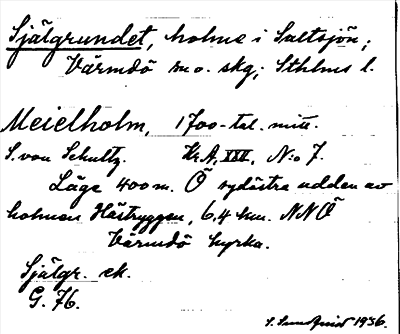 Själgrundet, holme i Saltsjön;
Värmdö sn o. skg; Sthlms l.
Meielholm, 1700-tal. mitt.
S. von Schultz. Kr.A, XXV, N:o 7.
Läge 400 m. Ö sydöstra udden av
holmen Hästryggen, 6,4 km. NNÖ
Värmdö kyrka.
Själgr. ek.
G. 76.
S. Sundqvist 1936.